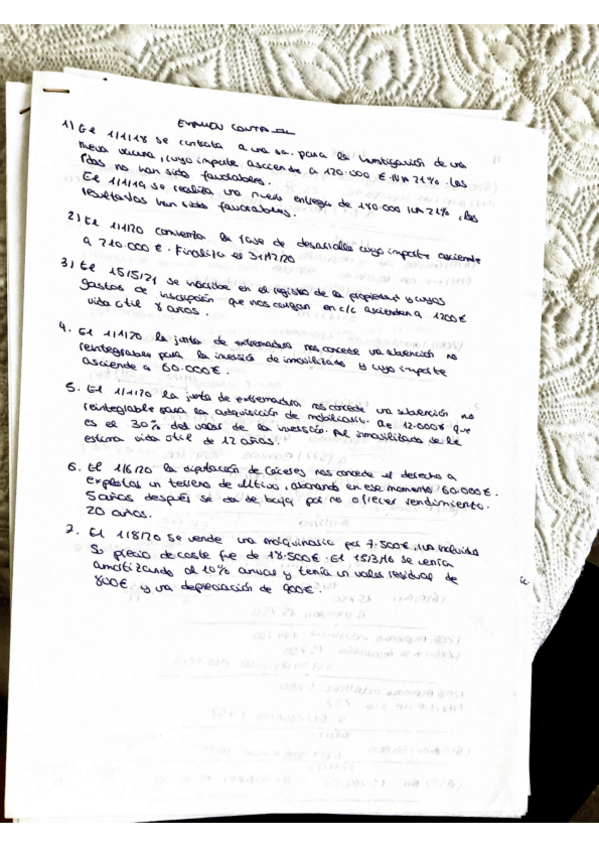 EXAMEN CONTA III
1) El 1/1/18 se contrata a una sa. para la investigación de una
nueva vacuna, cuyo importe asciende a 120.000 € IVA 21%. Las
Rdos no han sido favorables.
El 1/1/19 se realiza una nueva entrega de 180.000 IVA 21%, los
resultados han sido favorables.
2) El 1/1/20 comienza la fase de desarrollo cuyo importe asciende
a 210.000 €. Finaliza el 31/12/20
3) El 15/5/21 se inscribe en el registro de la propiedad y cuyos
gastos de inscripción que nos cargan en c/c ascienden a 1200€
vida útil 8 años.
4. El 1/1/20 la junta de extremadura nos concede una subvención no
reintegrable para la inversión de inmovilizado y cuyo importe
asciende a 60.000€.
5. El 1/1/20 la junta de extremadura nos concede una subvención no
reintegrable para la adquisición de mobiliario de 12.000€ que
es el 30% del valor de la inversión. Al inmovilizado se le
estima vida útil de 12 años.
6. El 1/6/20 la diputación de Cáceres nos concede el derecho a
explotar un terreno de cultivo, abonando en ese momento 60.000€.
5 años después se da de baja por no ofrecer rendimiento.
20 años.
7. El 1/8/20 se vende una maquinaria por 7.500€, IVA incluido
Su precio de coste fue de 18.500€. El 15/3/16 se venía
amortizando al 10% anual y tenía un valor residual de
800€ y una depreciación de 900€.